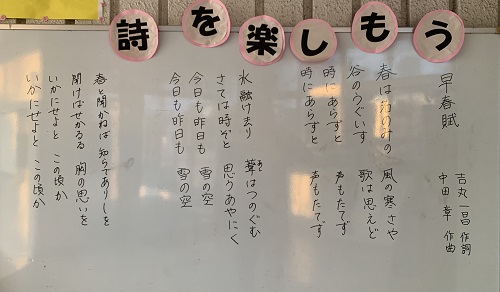 詩を楽しもう
早春賦
吉丸一昌 作詞
中田 章 作曲
春は名のみの 風の寒さや
谷のうぐいす 歌は思えど
時にあらずと 声もたてず
時にあらずと 声もたてず
氷融け去り 葦はつのぐむ
さては時ぞと 思うあやにく
今日も昨日も 雪の空
今日も昨日も 雪の空
春と聞かねば 知らでありしを
聞けばせかるる 胸の思いを
いかにせよと この頃か
いかにせよと この頃か